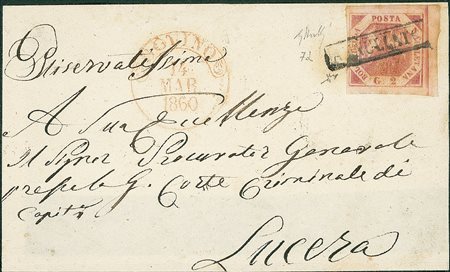 BOVINO
14
MAR
1860
72
POSTA
G. 2
ANNULLATO
Riservatissima
A Sua Eccellenza
Il Signor Procurator Generale
presso la G. Corte Criminale di
Lucera